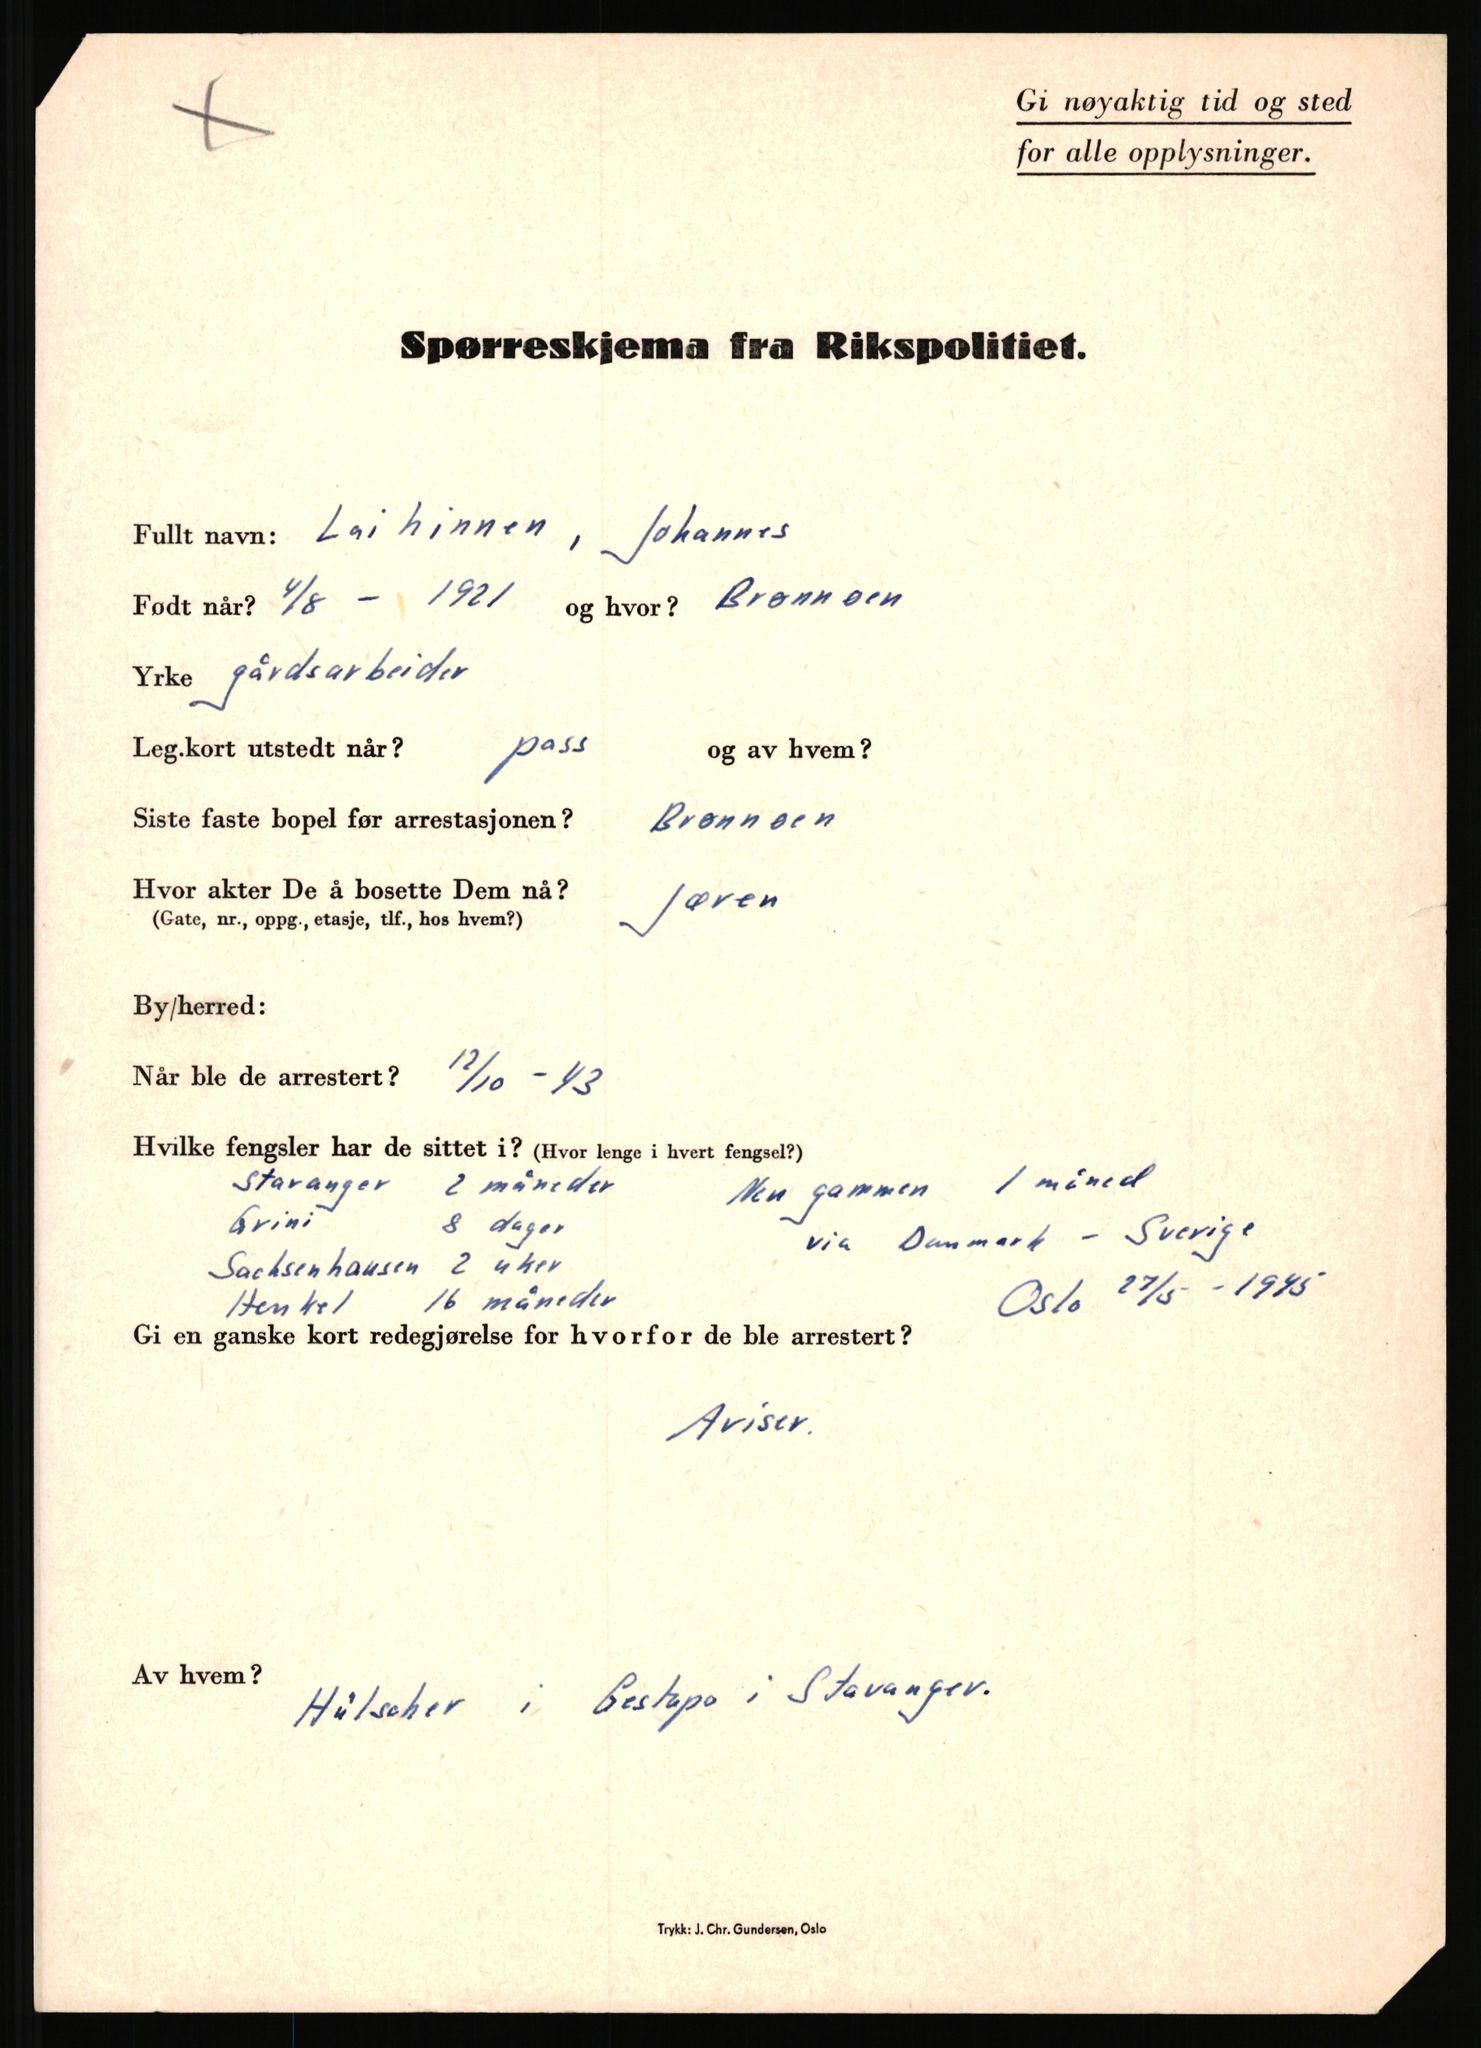 Gi nøyaktig tid og sted
for alle opplysninger.
Spørreskjema fra Rikspolitiet.
Fullt navn: Laihinnen, Johannes
Født når? 4/8 - 1921 og hvor? Brønnøen
Yrke gårdsarbeider
Leg.kort utstedt når? pass og av hvem?
Siste faste bopel før arrestasjonen? Brønnøen
Hvor akter De å bosette Dem nå? Jæren
(Gate, nr., oppg., etasje, tlf., hos hvem?)
By/herred:
Når ble de arrestert? 12/10 - 43
Hvilke fengsler har de sittet i? (Hvor lenge i hvert fengsel?)
Stavanger 2 måneder Neu gammen 1 måned
Grini 8 dager via Danmark - Sverige
Sachsenhausen 2 uker
Henkel 16 måneder Oslo 27/5 - 1945
Gi en ganske kort redegjørelse for hvorfor de ble arrestert?
Aviser.
Av hvem? Hülscher i Gestapo i Stavanger.
Trykk: J. Chr. Gundersen, Oslo